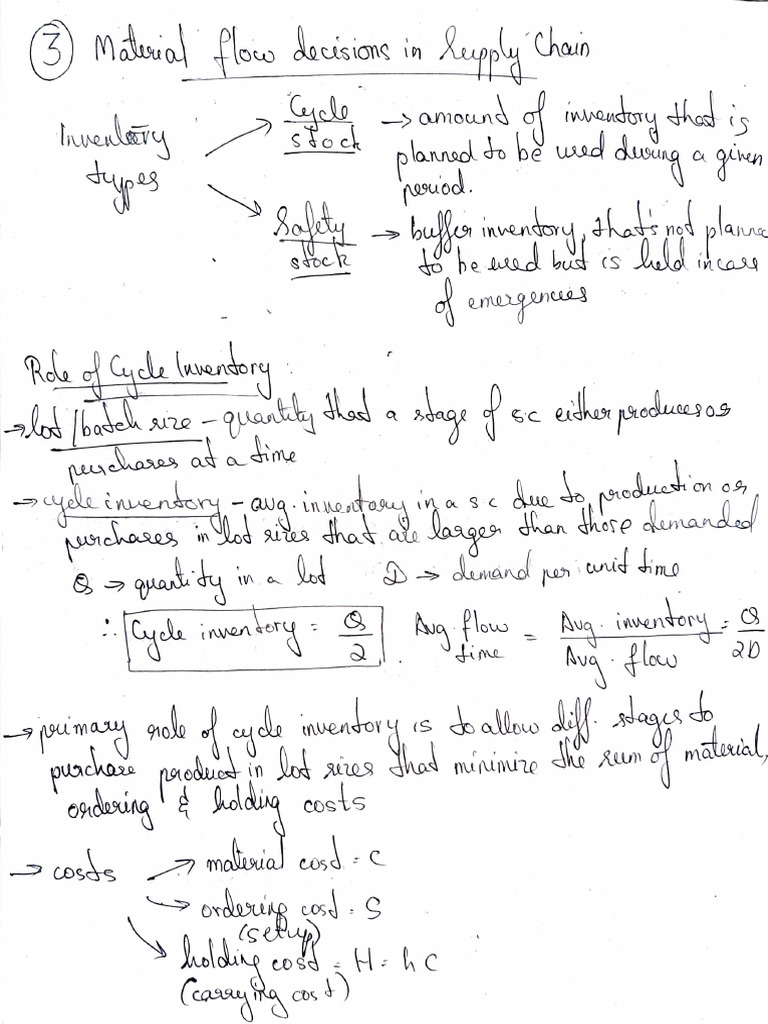 ③ Material flow decisions in Supply Chain
Inventory types
Cycle stock → amount of inventory that is
planned to be used during a given
period.
Safety stock → buffer inventory, that's not planne
to be used but is held in case
of emergencies
Role of Cycle Inventory :
→ lot / batch size - quantity that a stage of s.c either produces or
purchases at a time
→ cycle inventory - avg. inventory in a s c due to production or
purchases in lot sizes that are larger than those demanded
Q → quantity in a lot D → demand per unit time
∴ Cycle inventory = Q/2 . Avg. flow time = Avg. inventory / Avg. flow = Q/2D
→ primary role of cycle inventory is to allow diff. stages to
purchase product in lot sizes that minimize the sum of material,
ordering & holding costs
→ costs → material cost = C
→ ordering cost = S
(setup)
→ holding cost = H = h C
(carrying cost)